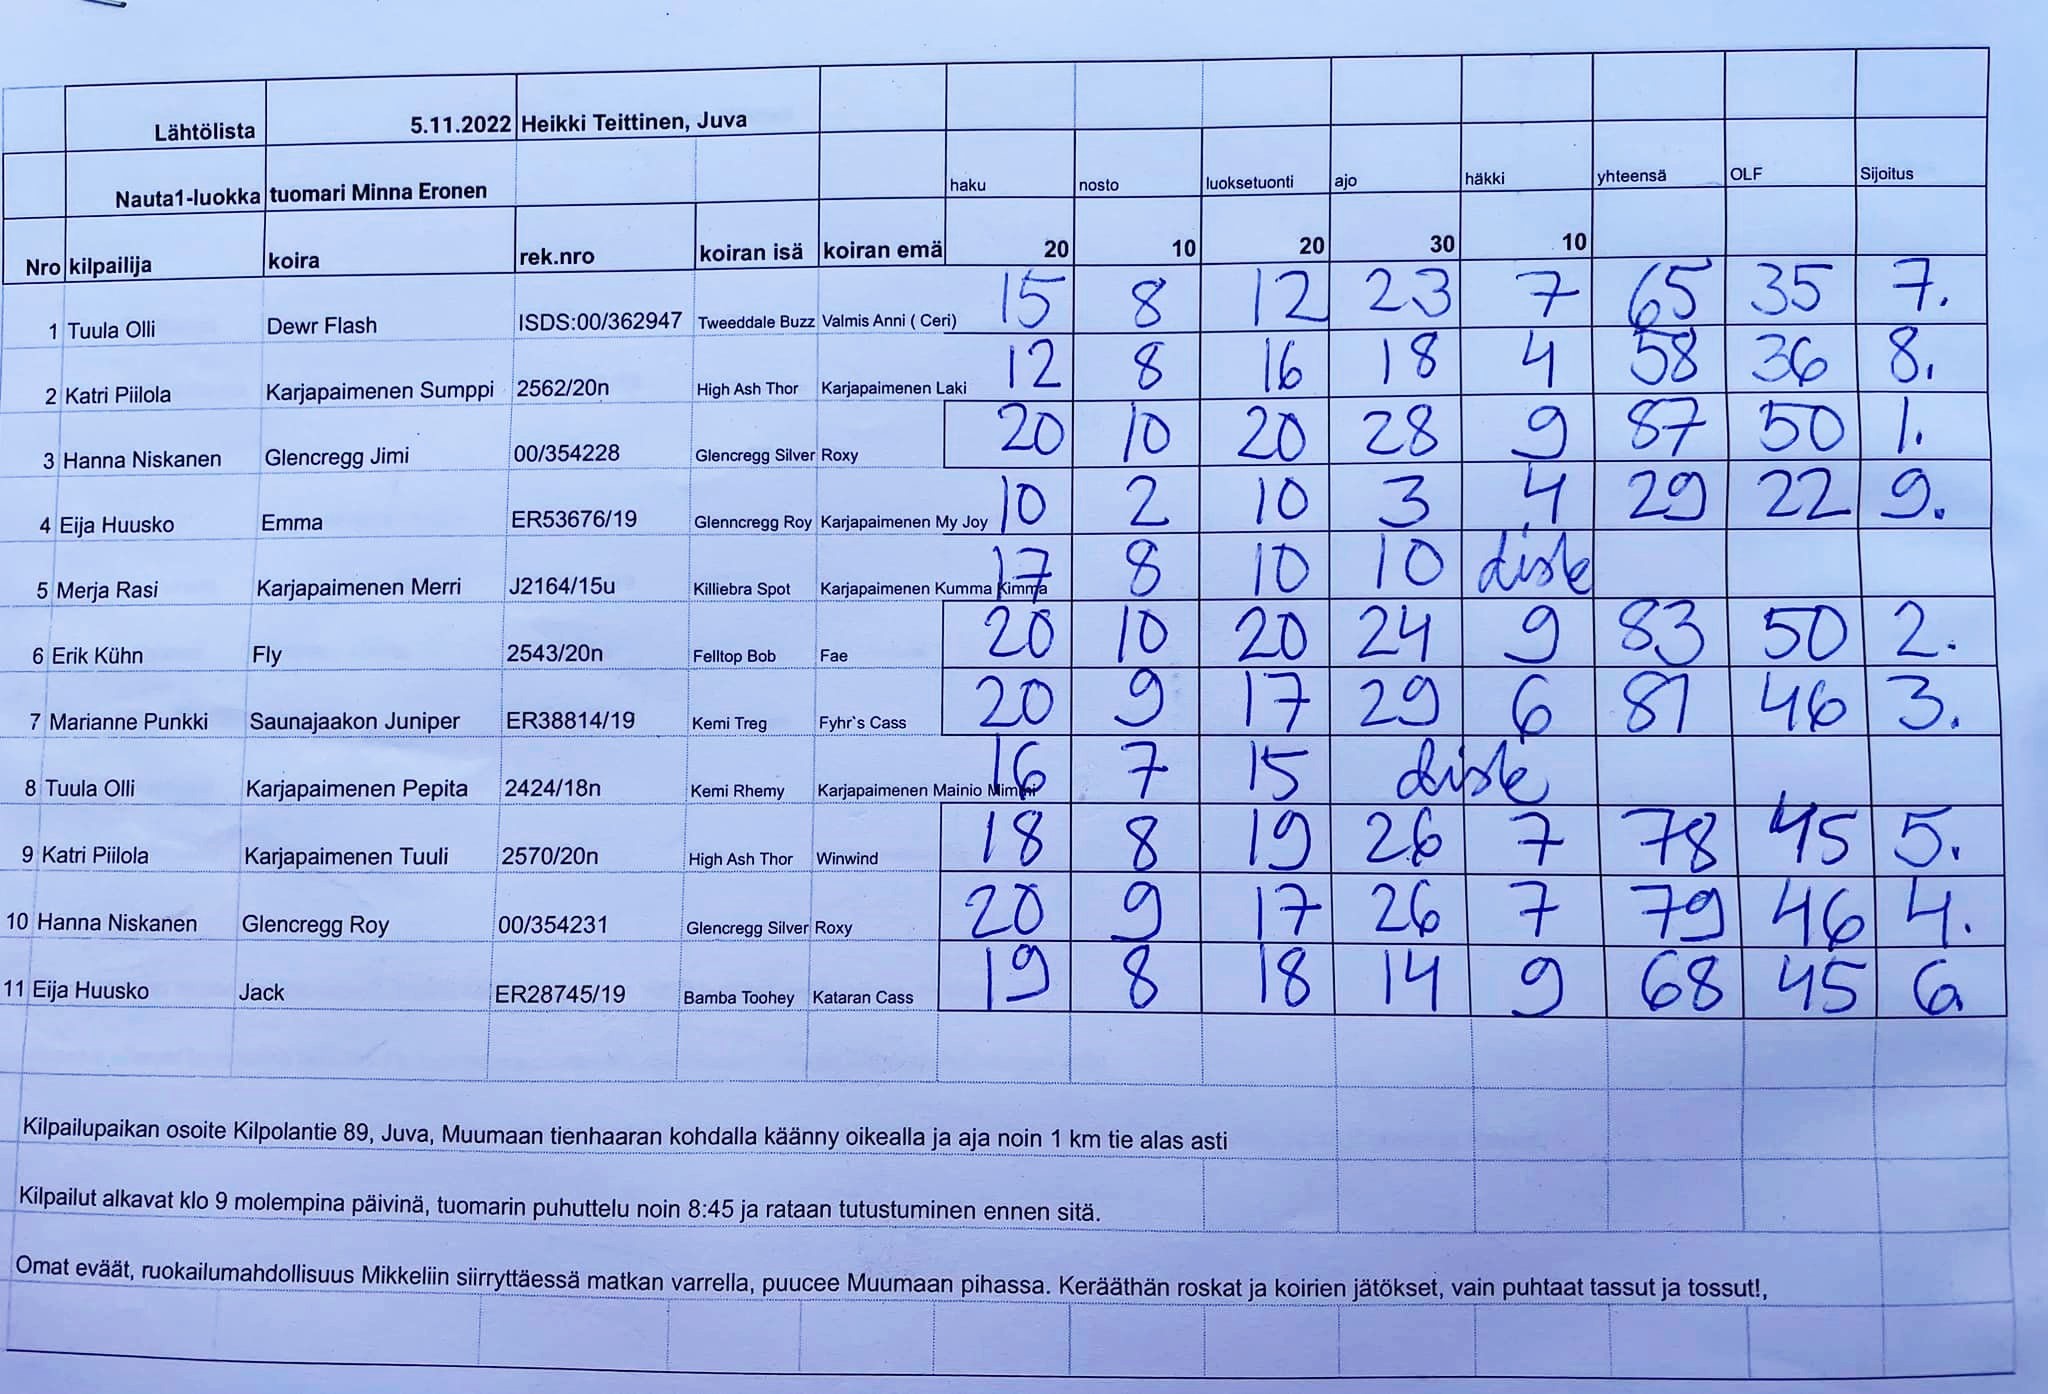 Lähtölista 5.11.2022 Heikki Teittinen, Juva
Nauta1-luokka tuomari Minna Eronen haku nosto luoksetuonti ajo häkki yhteensä OLF Sijoitus
Nro kilpailija koira rek.nro koiran isä koiran emä 20 10 20 30 10
1 Tuula Olli Dewr Flash ISDS:00/362947 Tweeddale Buzz Valmis Anni ( Ceri) 15 8 12 23 7 65 35 7.
2 Katri Piilola Karjapaimenen Sumppi 2562/20n High Ash Thor Karjapaimenen Laki 12 8 16 18 4 58 36 8.
3 Hanna Niskanen Glencregg Jimi 00/354228 Glencregg Silver Roxy 20 10 20 28 9 87 50 1.
4 Eija Huusko Emma ER53676/19 Glenncregg Roy Karjapaimenen My Joy 10 2 10 3 4 29 22 9.
5 Merja Rasi Karjapaimenen Merri J2164/15u Killiebra Spot Karjapaimenen Kumma Kimma 17 8 10 10 disk
6 Erik Kühn Fly 2543/20n Felltop Bob Fae 20 10 20 24 9 83 50 2.
7 Marianne Punkki Saunajaakon Juniper ER38814/19 Kemi Treg Fyhr`s Cass 20 9 17 29 6 81 46 3.
8 Tuula Olli Karjapaimenen Pepita 2424/18n Kemi Rhemy Karjapaimenen Mainio Mimmi 16 7 15 disk
9 Katri Piilola Karjapaimenen Tuuli 2570/20n High Ash Thor Winwind 18 8 19 26 7 78 45 5.
10 Hanna Niskanen Glencregg Roy 00/354231 Glencregg Silver Roxy 20 9 17 26 7 79 46 4.
11 Eija Huusko Jack ER28745/19 Bamba Toohey Kataran Cass 19 8 18 14 9 68 45 6.
Kilpailupaikan osoite Kilpolantie 89, Juva, Muumaan tienhaaran kohdalla käänny oikealla ja aja noin 1 km tie alas asti
Kilpailut alkavat klo 9 molempina päivinä, tuomarin puhuttelu noin 8:45 ja rataan tutustuminen ennen sitä.
Omat eväät, ruokailumahdollisuus Mikkeliin siirryttäessä matkan varrella, puucee Muumaan pihassa. Kerääthän roskat ja koirien jätökset, vain puhtaat tassut ja tossut!,